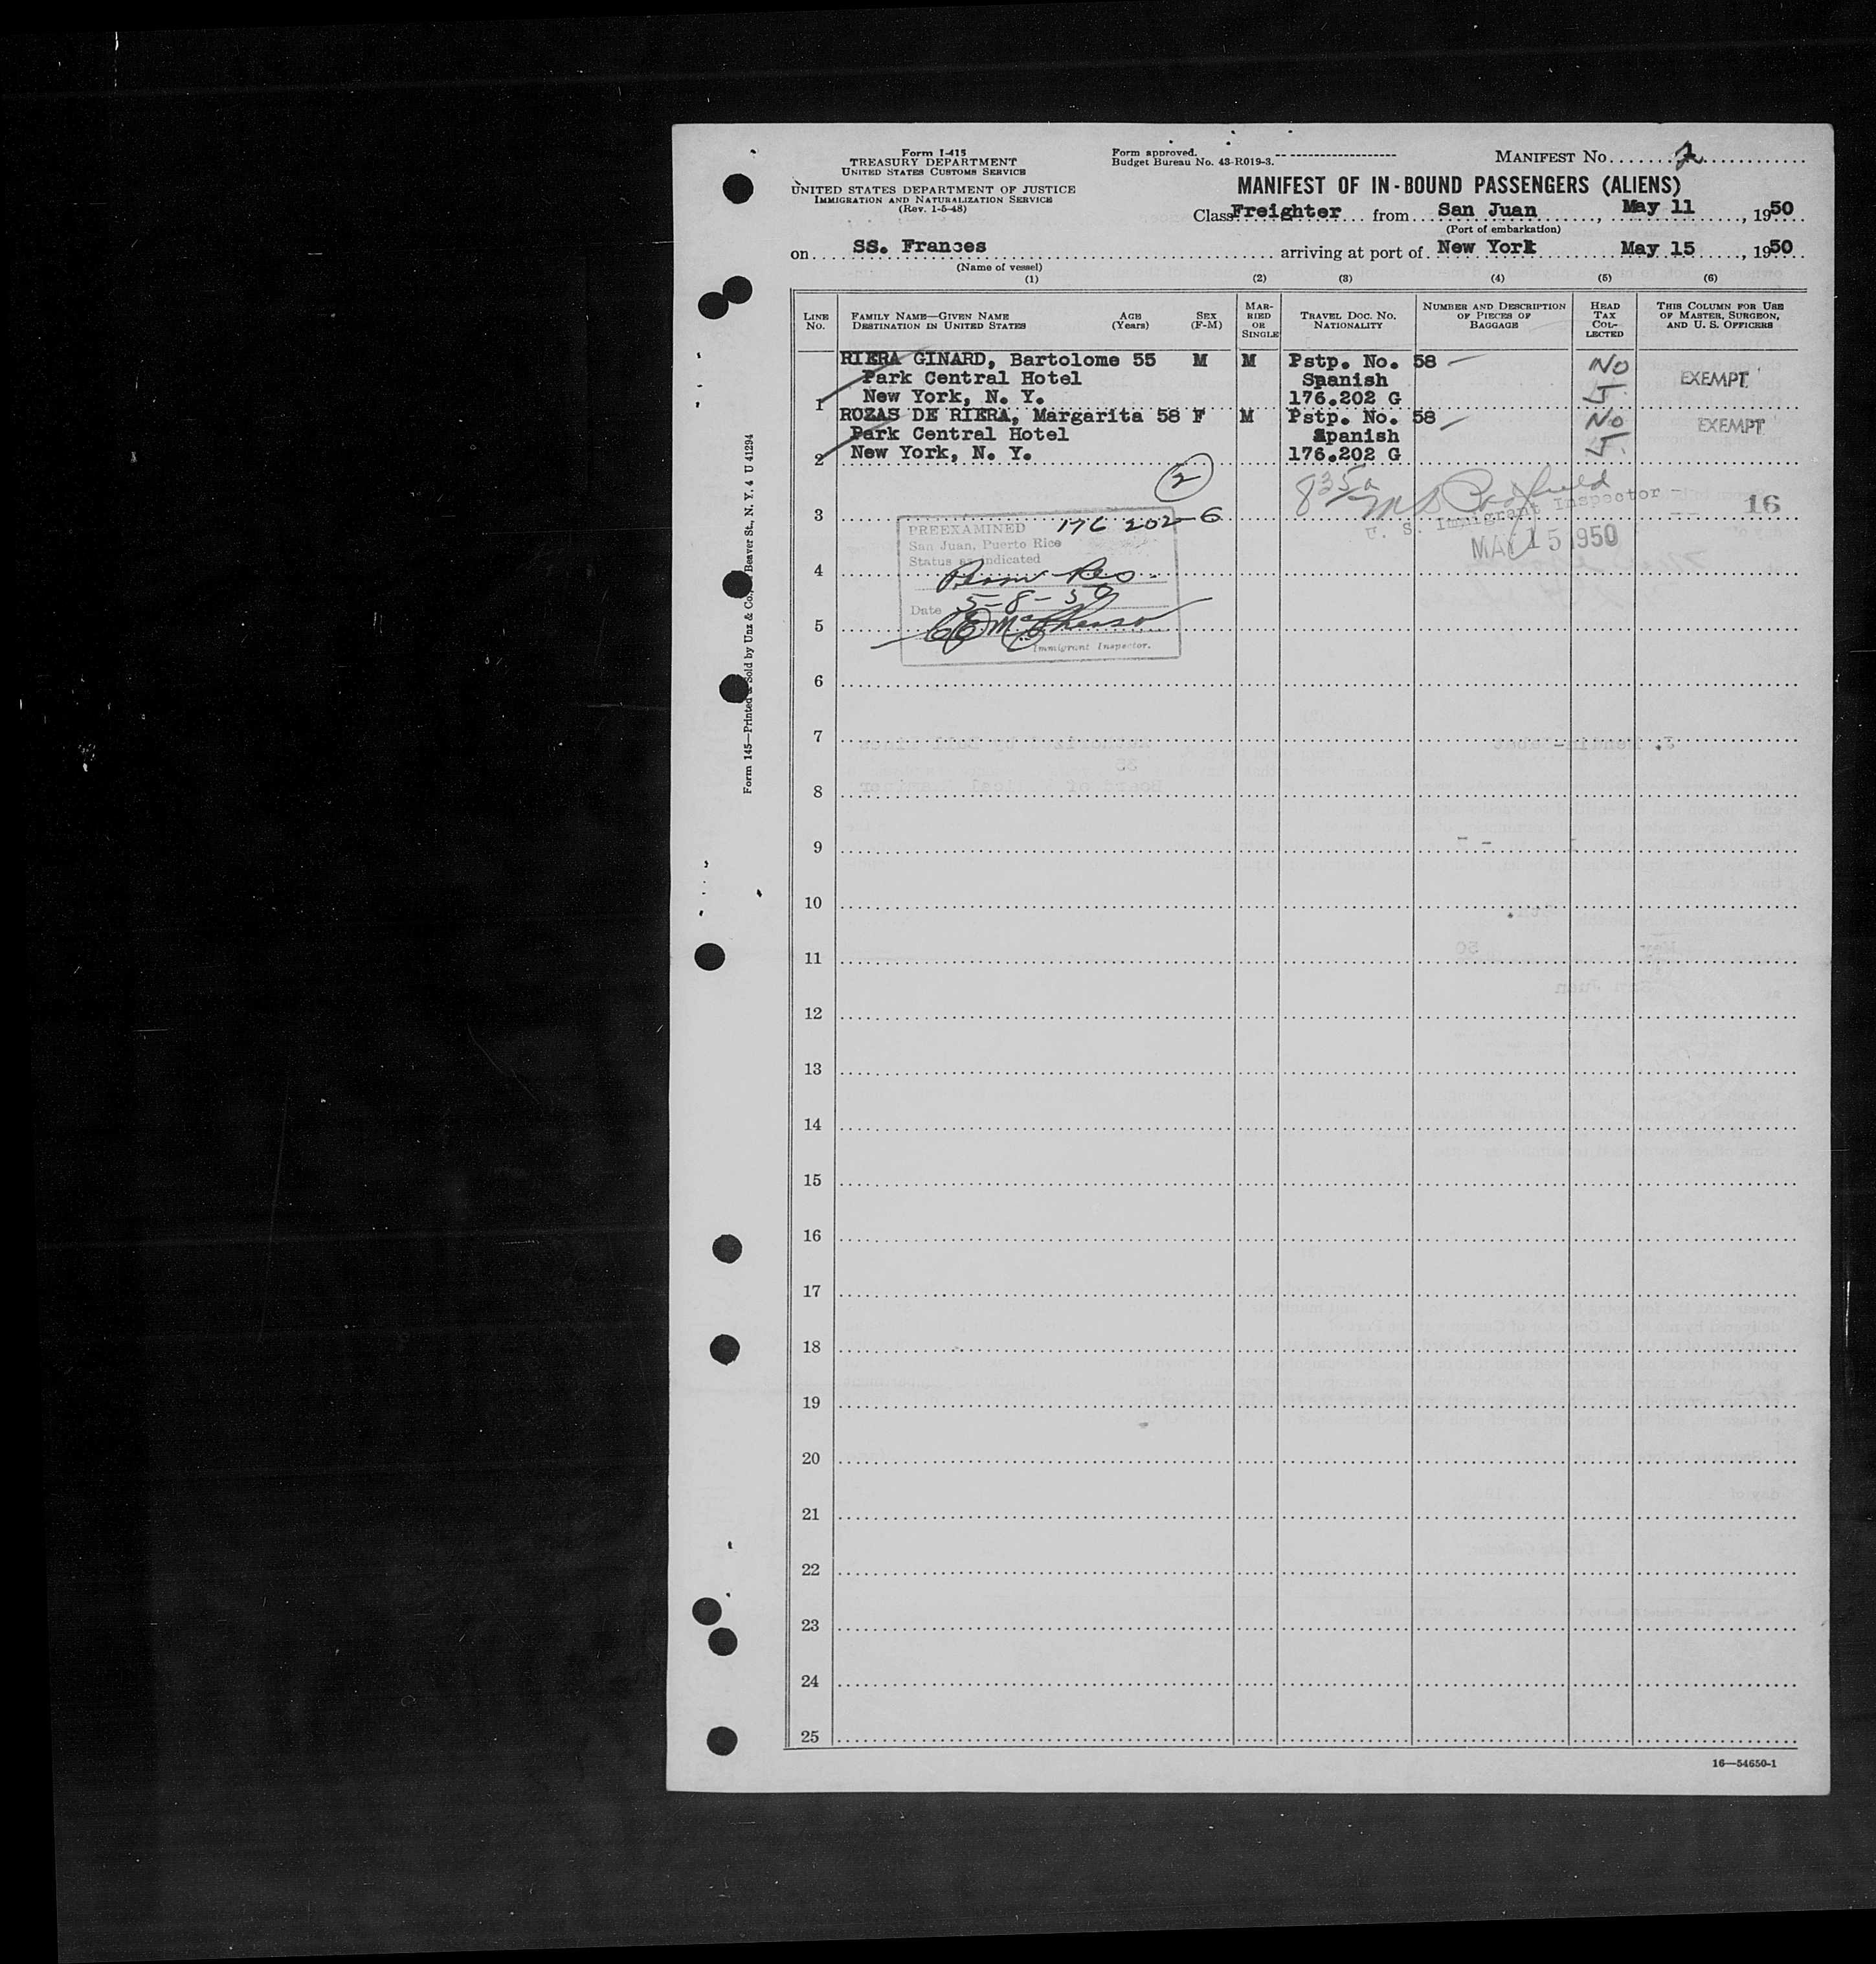 Form I-415
TREASURY DEPARTMENT
UNITED STATES CUSTOMS SERVICE
UNITED STATES DEPARTMENT OF JUSTICE
IMMIGRATION AND NATURALIZATION SERVICE
(Rev. 1-5-48)
Form approved.
Budget Bureau No. 43-R019-3.
MANIFEST No.
MANIFEST OF IN-BOUND PASSENGERS (ALIENS)
Class Freighter from San Juan, May 11, 1950
(Port of embarkation)
on SS. Frances arriving at port of New York May 15, 1950
(Name of vessel)
(1) (2) (3) (4) (5) (6)
LINE No.
FAMILY NAME—GIVEN NAME DESTINATION IN UNITED STATES
AGE (Years)
SEX (F-M)
MARRIED OR SINGLE
TRAVEL DOC. NO. NATIONALITY
NUMBER AND DESCRIPTION OF PIECES OF BAGGAGE
HEAD TAX COLLECTED
THIS COLUMN FOR USE OF MASTER, SURGEON, AND U. S. OFFICERS
RIERA GINARD, Bartolome 55 M M Pstp. No. 58 — No
Park Central Hotel Spanish EXEMPT
1 New York, N. Y. 176.202 G
ROZAS DE RIERA, Margarita 58 F M Pstp. No. 58 — No
Park Central Hotel Spanish EXEMPT
2 New York, N. Y. 176.202 G
2
835a
U. S. Immigrant Inspector
16
MAY 15 1950
3
PREEXAMINED 176 202-G
San Juan, Puerto Rico
Status as indicated
4 Perm Res.
Date 5-8-50
5
Immigrant Inspector.
6
7
8
9
10
11
12
13
14
15
16
17
18
19
20
21
22
23
24
25
16—54650-1
Form 145—Printed & Sold by Unz & Co., Beaver St., N. Y. 4 U 41294